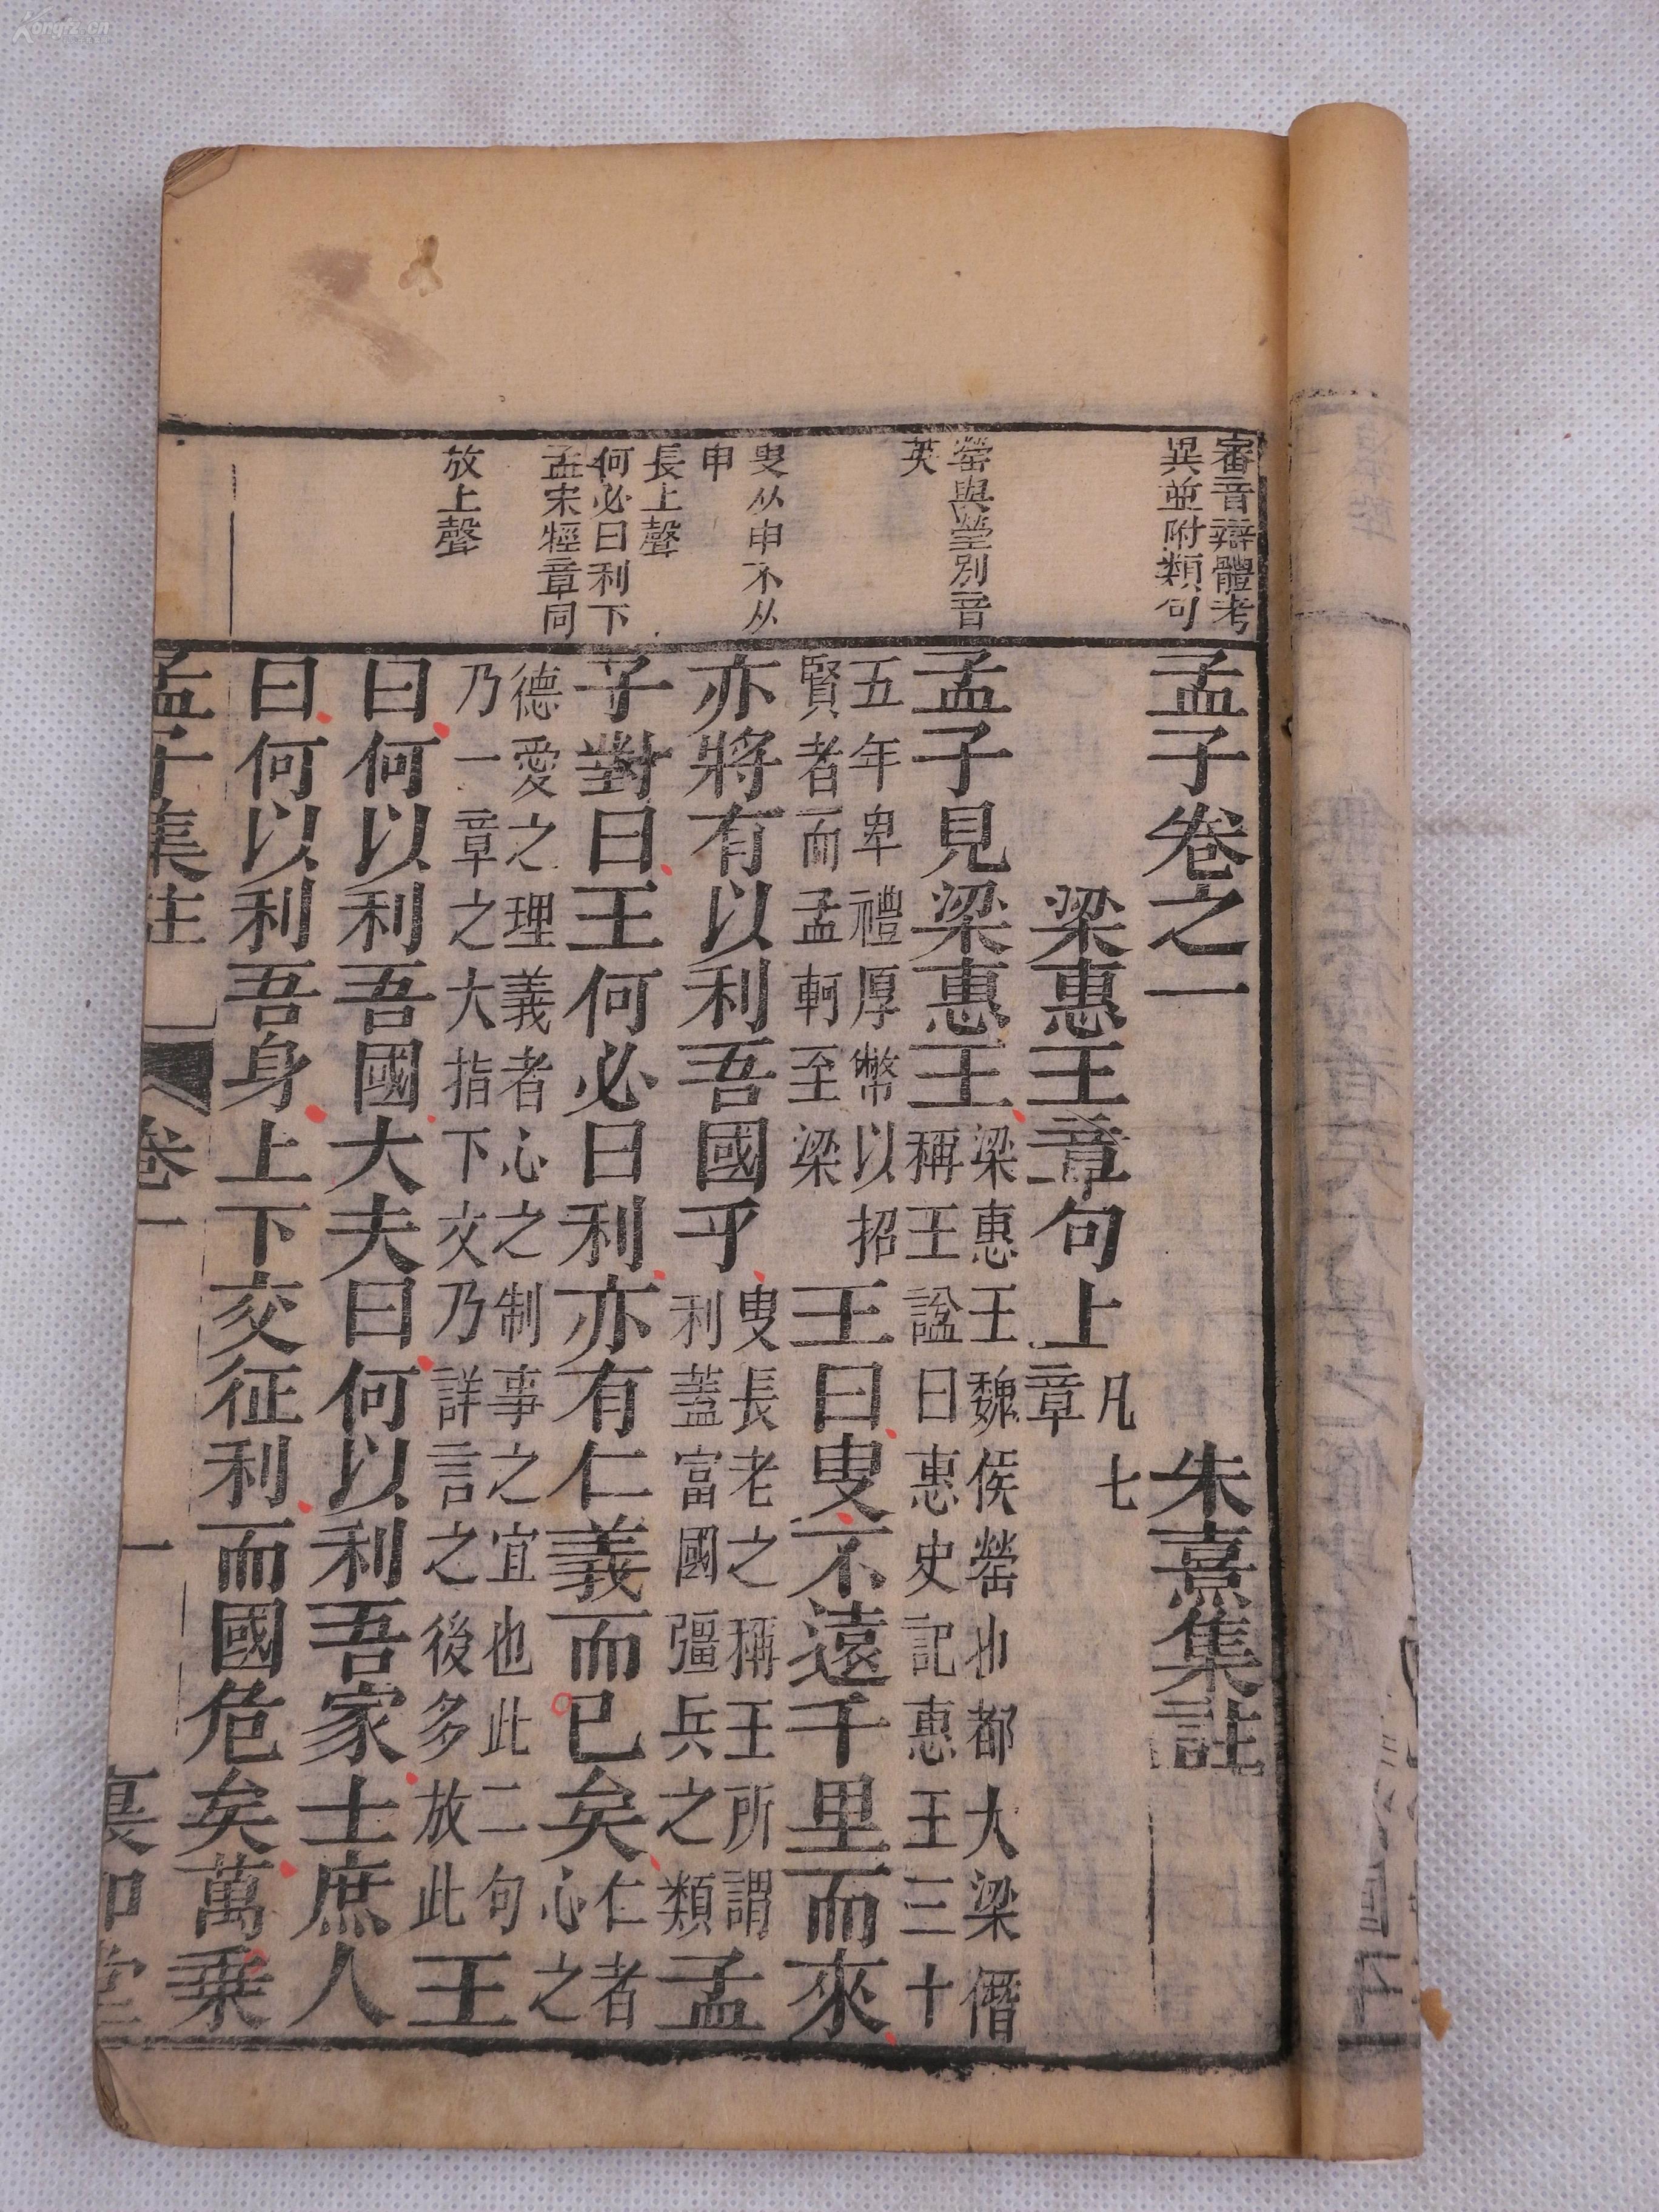 Kongfz.cn
審音辯體考
異並附類句
罃與瑩別音
英
叟从申不从
申
長上聲
何必曰利下
孟宋牼章同
放上聲
孟子卷之一
朱熹集註
梁惠王章句上
凡七
章
孟子見梁惠王
梁惠王魏侯罃也都大梁僭
稱王諡曰惠史記惠王三十
五年卑禮厚幣以招
賢者而孟軻至梁
王曰叟不遠千里而來
亦將有以利吾國乎
叟長老之稱王所謂
利蓋富國彊兵之類
孟
子對曰王何必曰利亦有仁義而已矣
仁者
心之
德愛之理義者心之制事之宜也此二句
乃一章之大指下文乃詳言之後多放此
王
曰何以利吾國大夫曰何以利吾家士庶人
曰何以利吾身上下交征利而國危矣萬乘
孟子集註
卷一
一